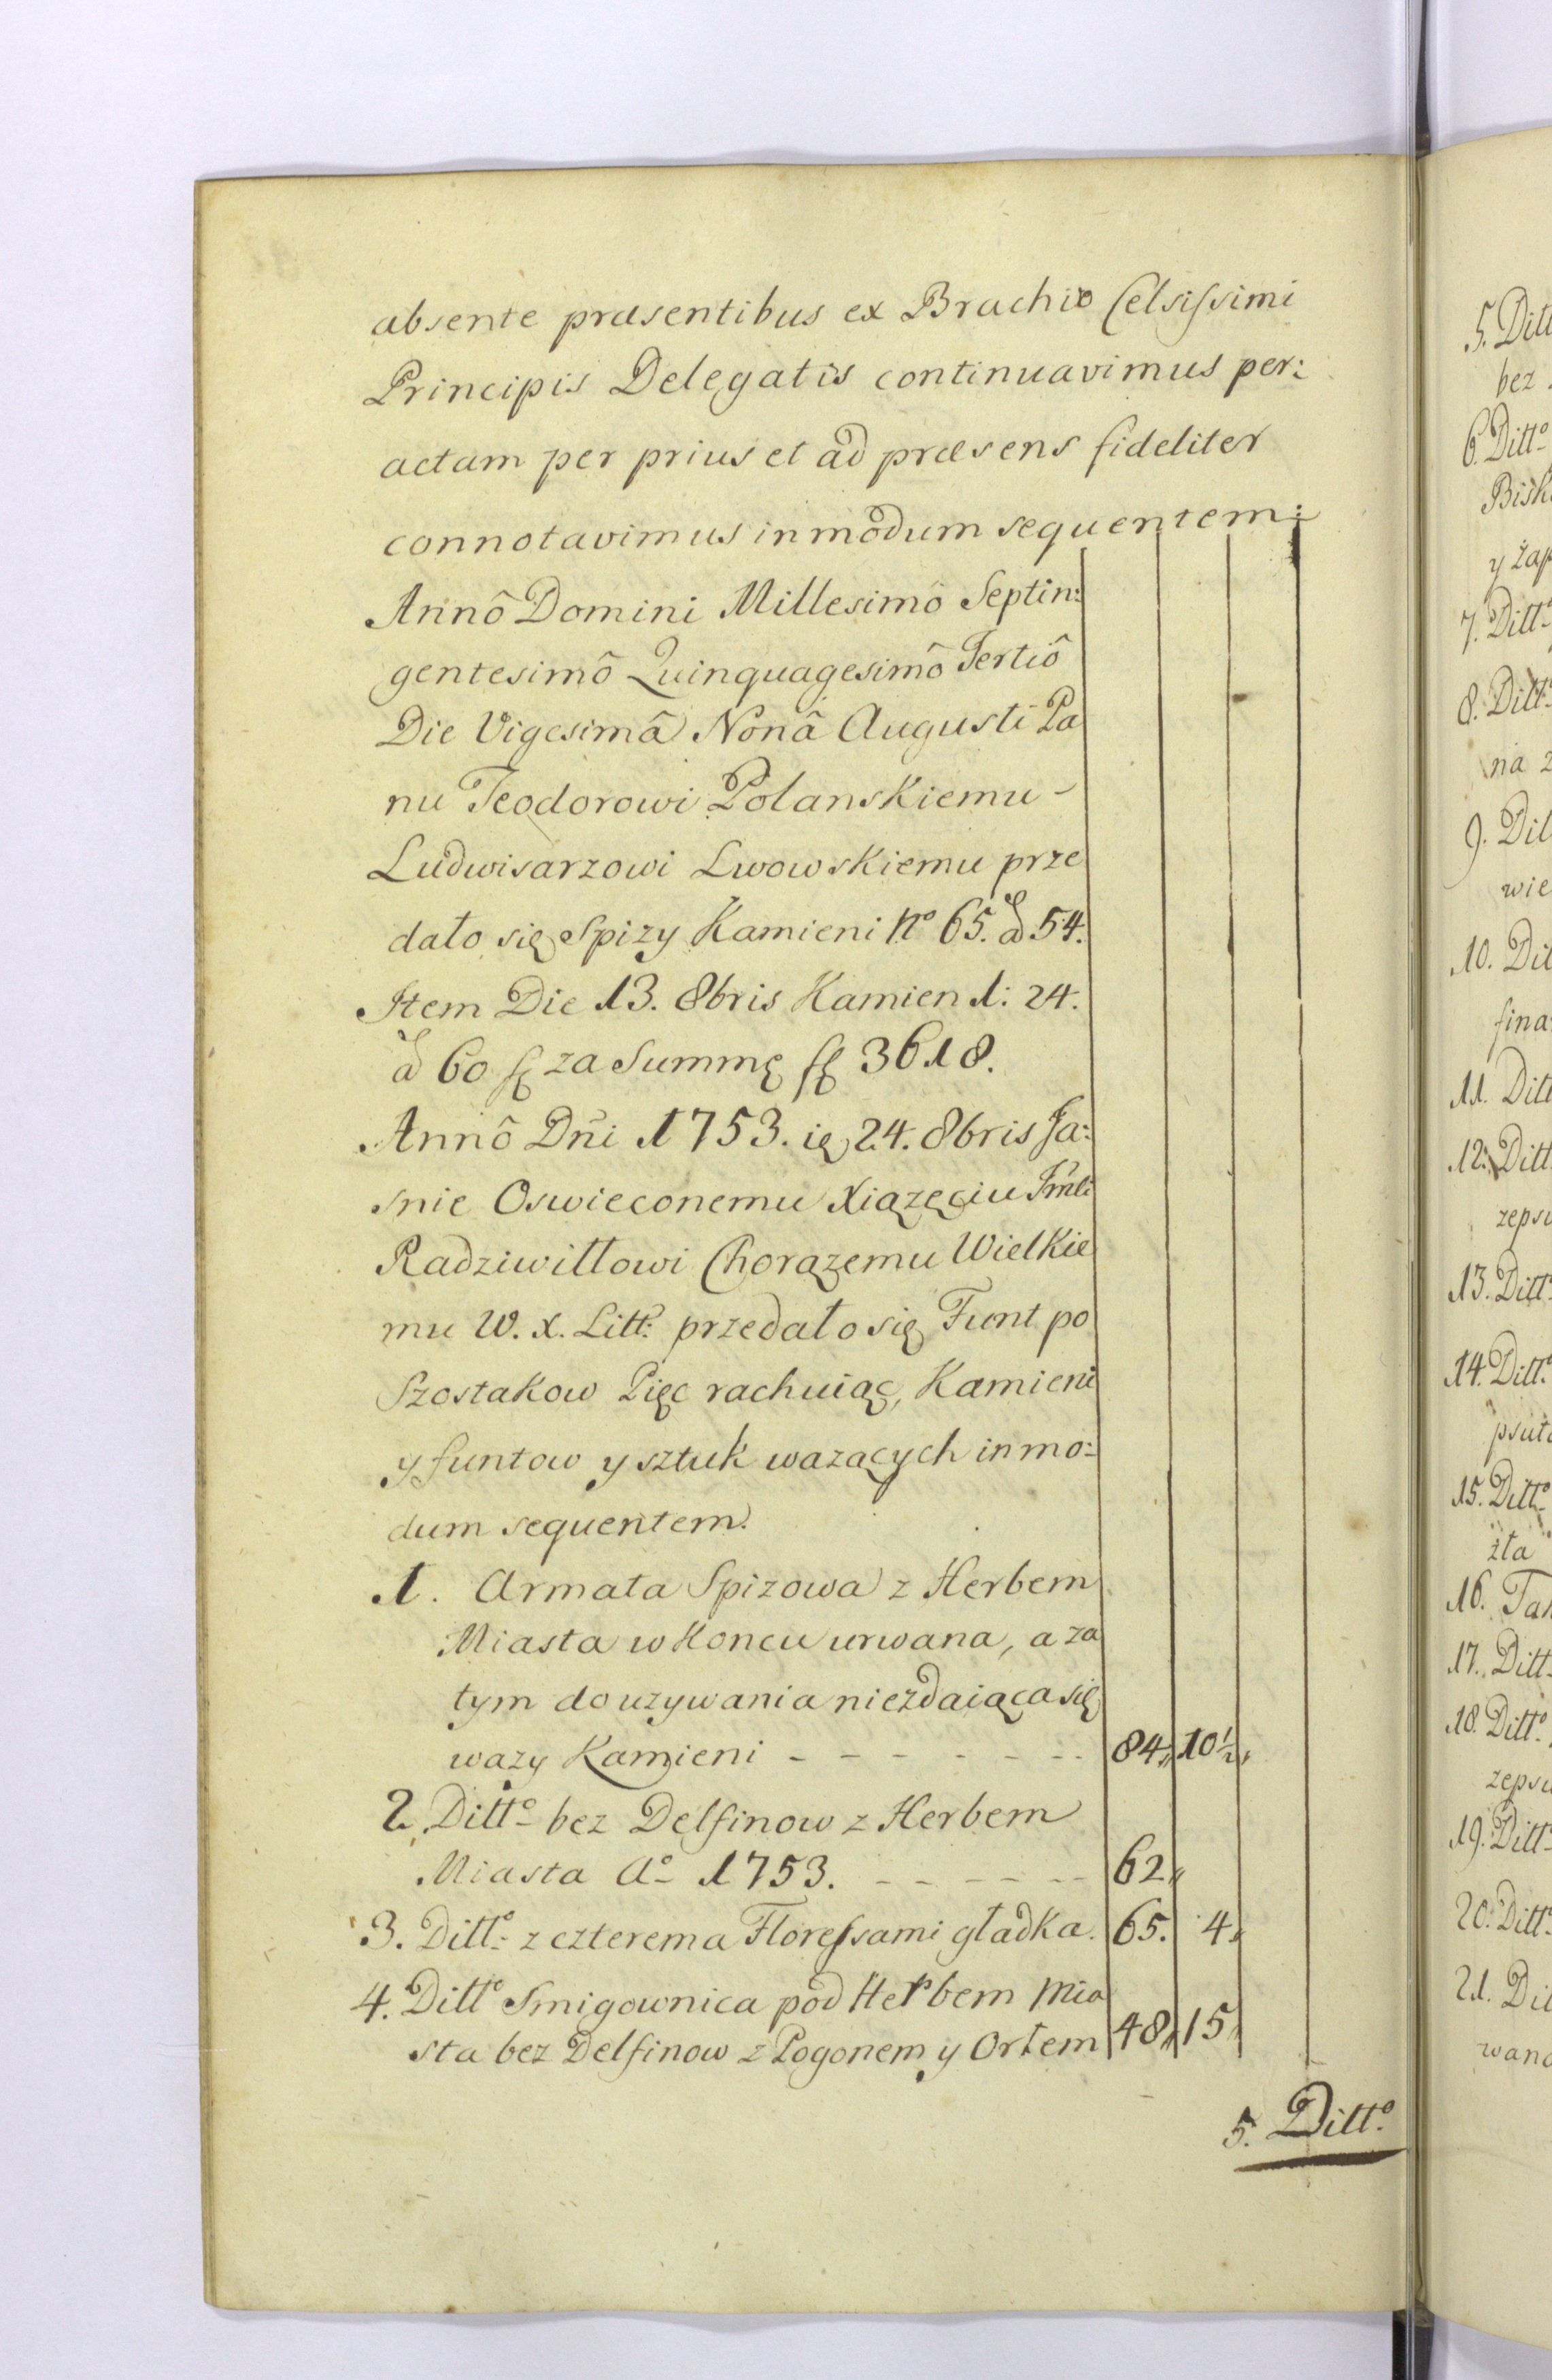 absente præsentibus ex Brachio Celsissimi
Principis Delegatis continuavimus per:
actam per prius et ad præsens fideliter
connotavimus in modum sequentem:
Annô Domini Millesimô Septin:
gentesimô Quinquagesimô Tertiô
Die Vigesimâ Nonâ Augusti Pa
nu Teodorowi Polanskiemu -
Ludwisarzowi Lwowskiemu prze
dało się Spizy Kamieni Nº 65. ad 54.
Item Die 13. 8bris Kamien 1: 24.
ad 60 fl za Summę fl 3618.
Annô Dñi 1753. ię 24. 8bris Ja:
snie Oswieconemu Xiązęciu Jmći
Radziwiłłowi Chorązemu Wielkie
mu W. X. Litt: przedało się Funt po
Szostakow Pięc rachuiąc, Kamieni
y funtow y sztuk wazących in mo:
dum sequentem.
1. Armata Spizowa z Herbem
Miasta w Koncu urwana, a za
tym do uzywania niezdaiąca się
wazy Kamieni - - - - - - - 84,, 10½,,
2. Dittº bez Delfinow z Herbem
Miasta Aº 1753. - - - - - 62,,
3. Dittº z czterema Floressami gładka. 65. 4,,
4. Dittº Smigownica pod Herbem Mia
sta bez Delfinow z Pogonem y Orłem 48,, 15,,
5. Dittº
5. Ditt
bez
6. Dittº
Bisk
y żap
7. Dittº
8. Dittº
na z
9. Dit
wie
10. Dit
fina
11. Ditt
12. Ditt
zepsu
13. Ditt
14. Dittº
psuta
15. Dittº
zła
16. Tak
17. Ditt
18. Dittº
zepsu
19. Ditt
20. Ditt
21. Dit
wana